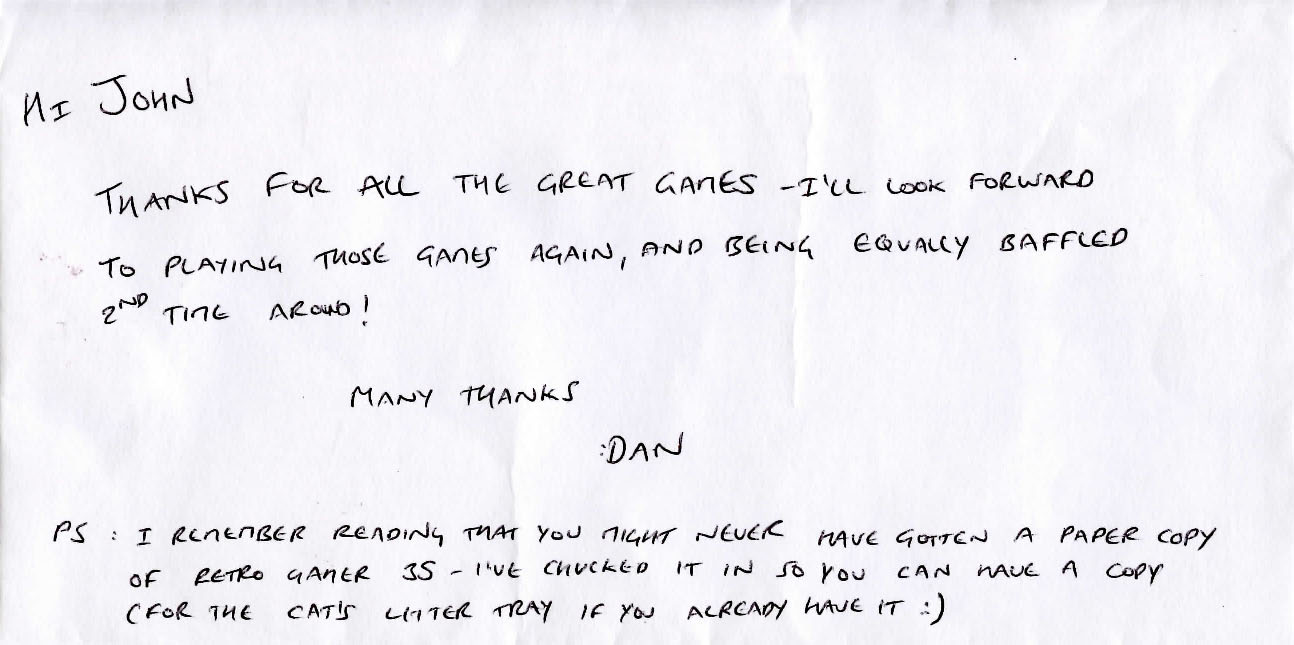 HI JOHN
THANKS FOR ALL THE GREAT GAMES - I'LL LOOK FORWARD
TO PLAYING THOSE GAMES AGAIN, AND BEING EQUALLY BAFFLED
2ND TIME AROUND!
MANY THANKS
:DAN
PS : I REMEMBER READING THAT YOU MIGHT NEVER HAVE GOTTEN A PAPER COPY
OF RETRO GAMER 35 - I'VE CHUCKED IT IN SO YOU CAN HAVE A COPY
(FOR THE CAT'S LITTER TRAY IF YOU ALREADY HAVE IT :)